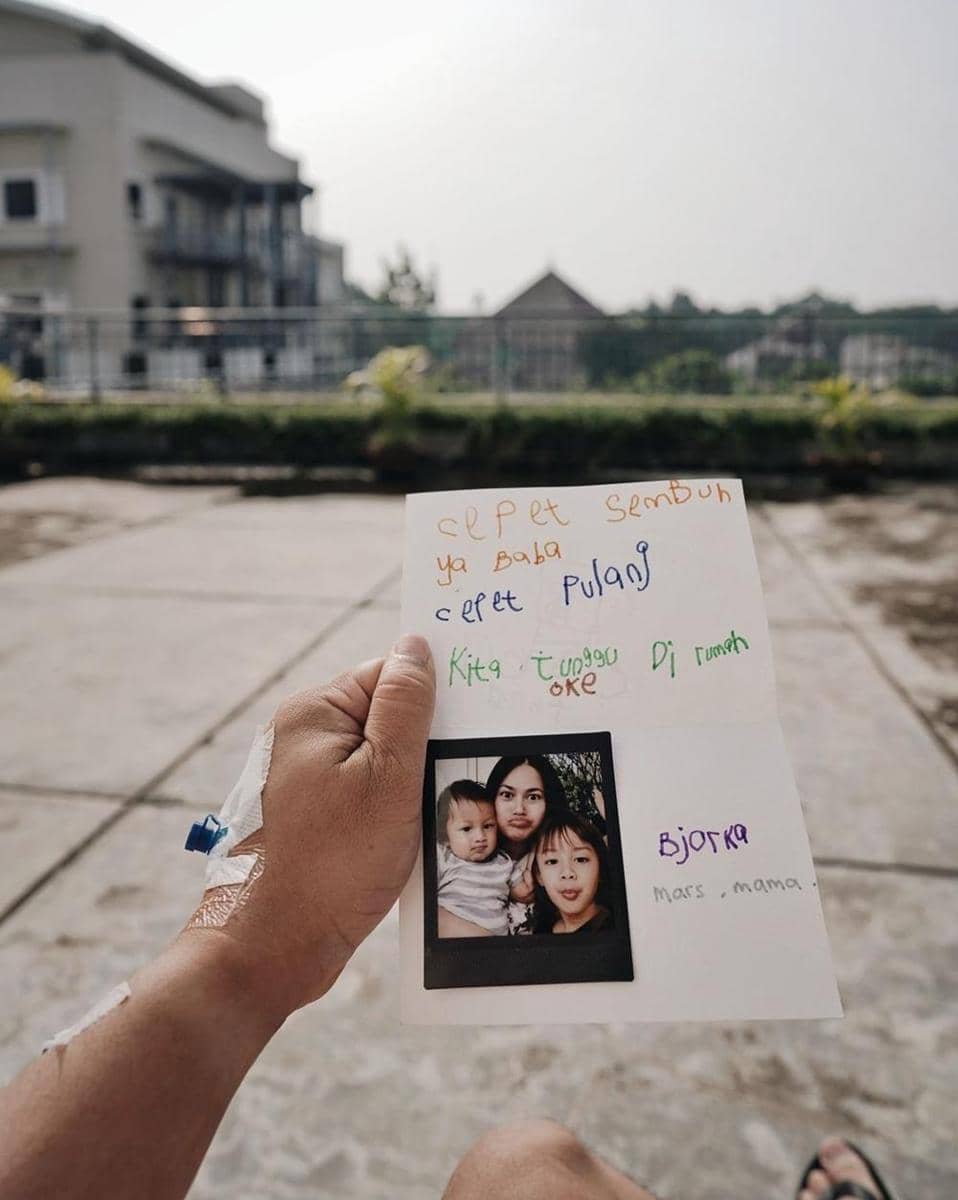 cepet semBuh
ya BaBa
cepet pulang
Kita tunggu Di rumah
oke
Bjorka
mars, mama.